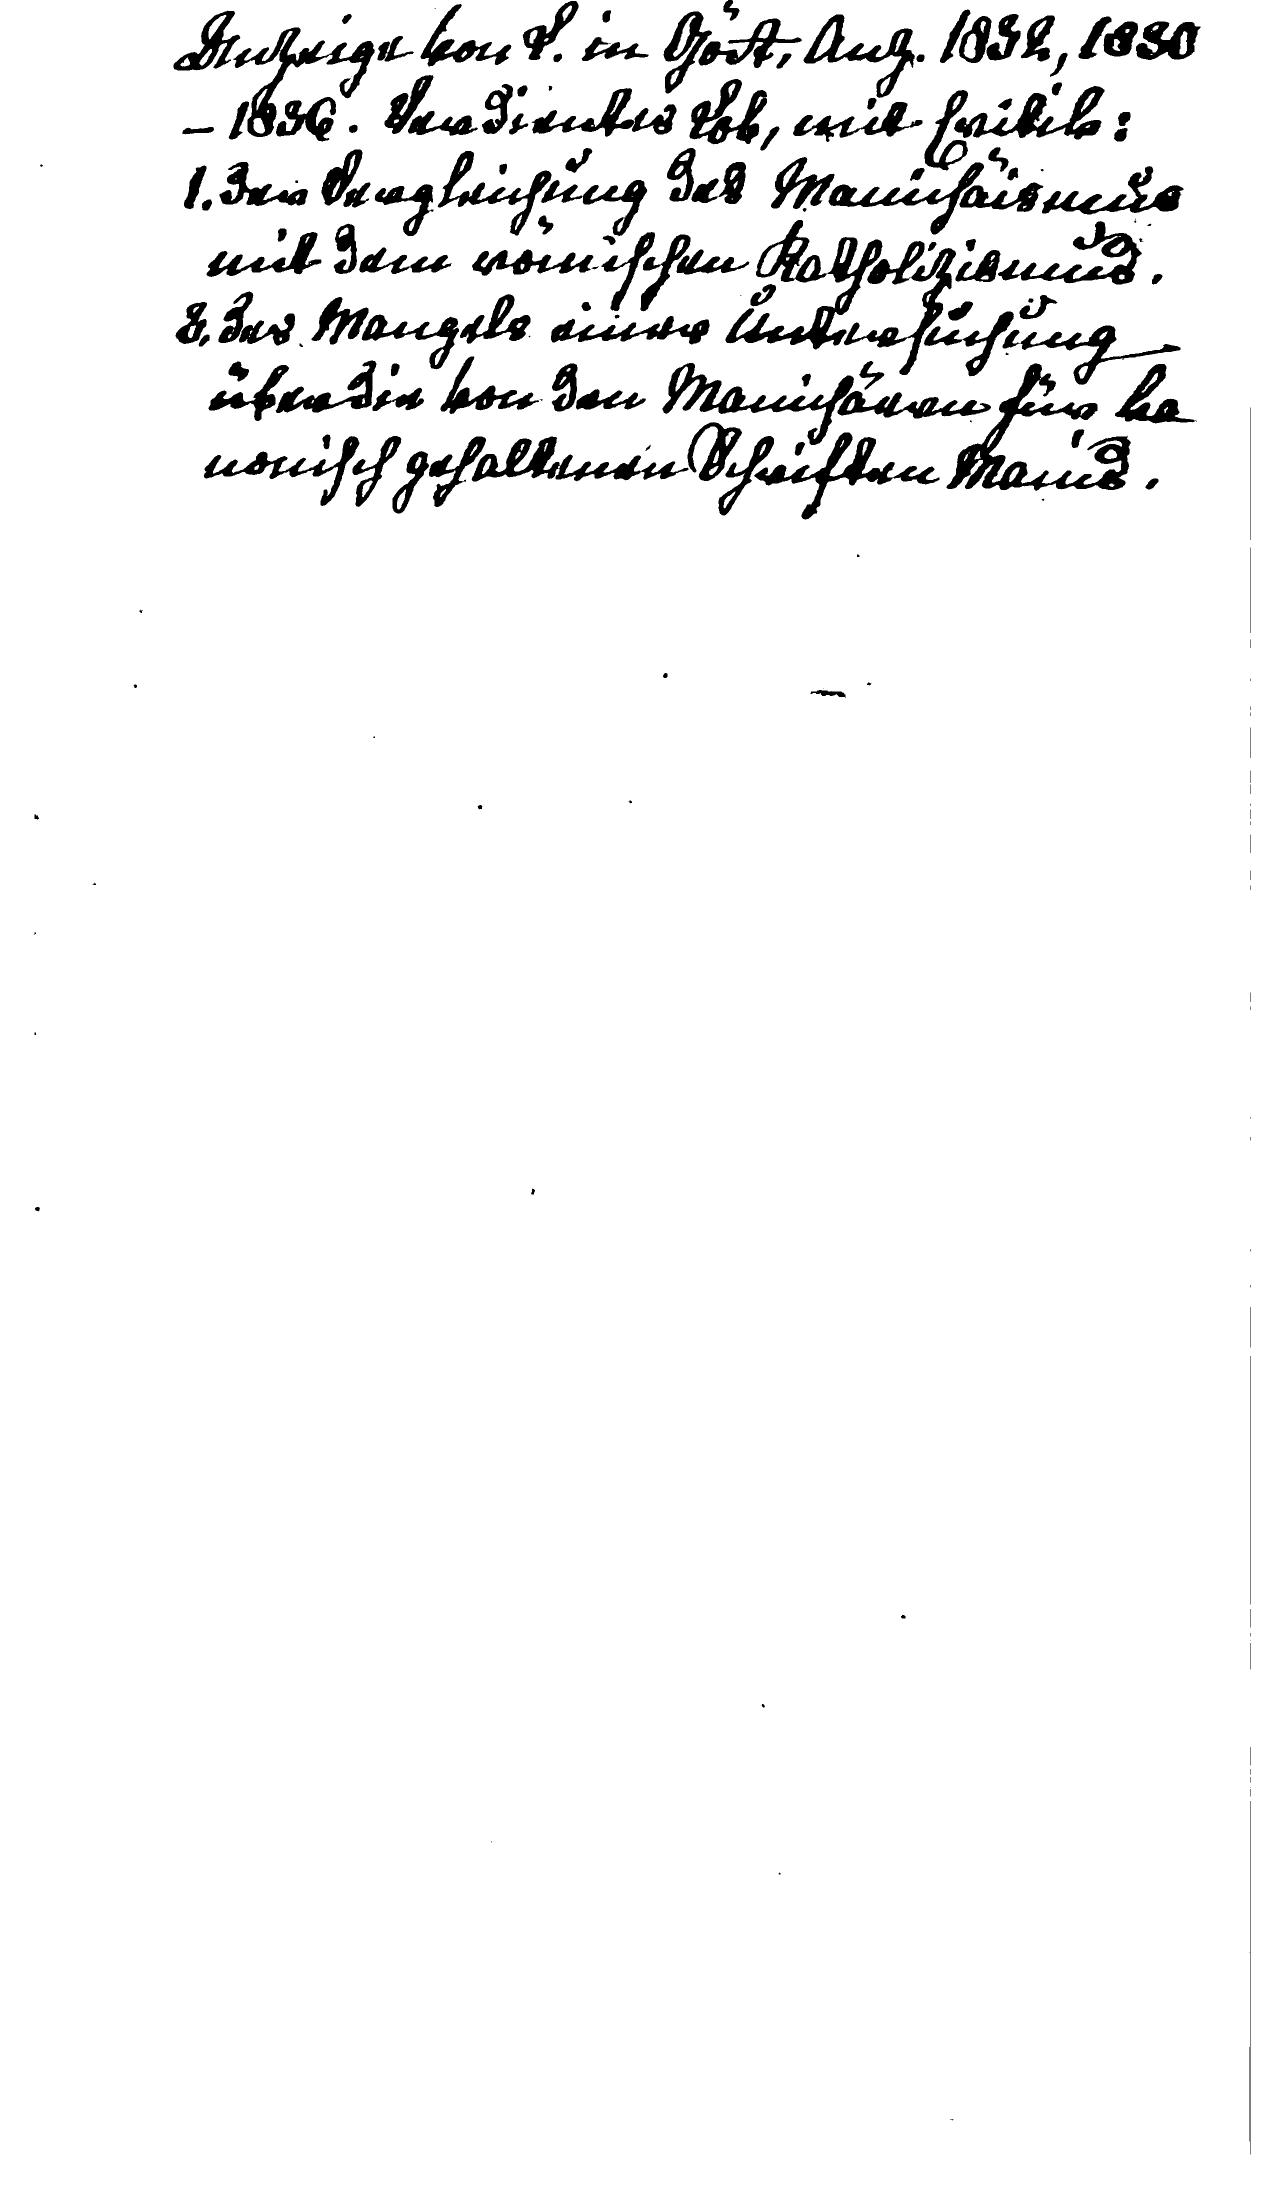 Anzeige von L. in Gött. Anz. 1832, 1830
– 1836. Verdientes Lob, mit Critik:
1. der Vergleichung des Manichäismus
mit dem römischen Katholizismus.
2. des Mangels einer Untersuchung
über die von den Manichäern für ka
nonisch gehaltenen Schriften Manis.